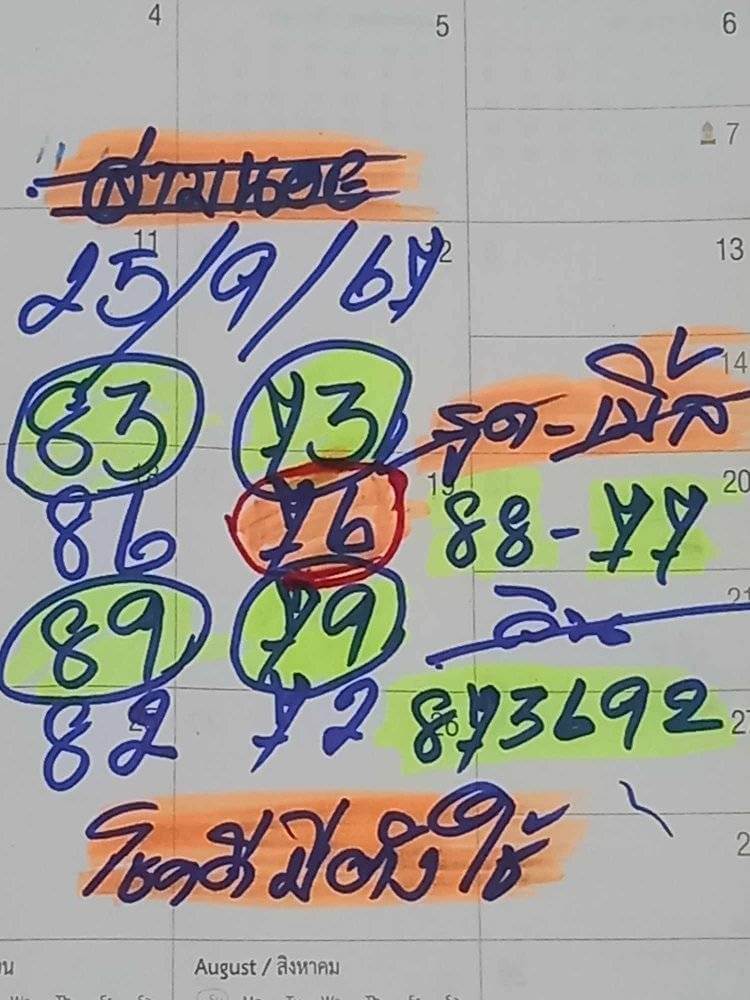 4 5 6
7
11 12 13
25/9/67
14
83 73 รูด-เบิ้ล
19 20
86 76 88-77
21
89 79
82 72 873692
26 27
โชคดีมีตังใช้
2
August / สิงหาคม